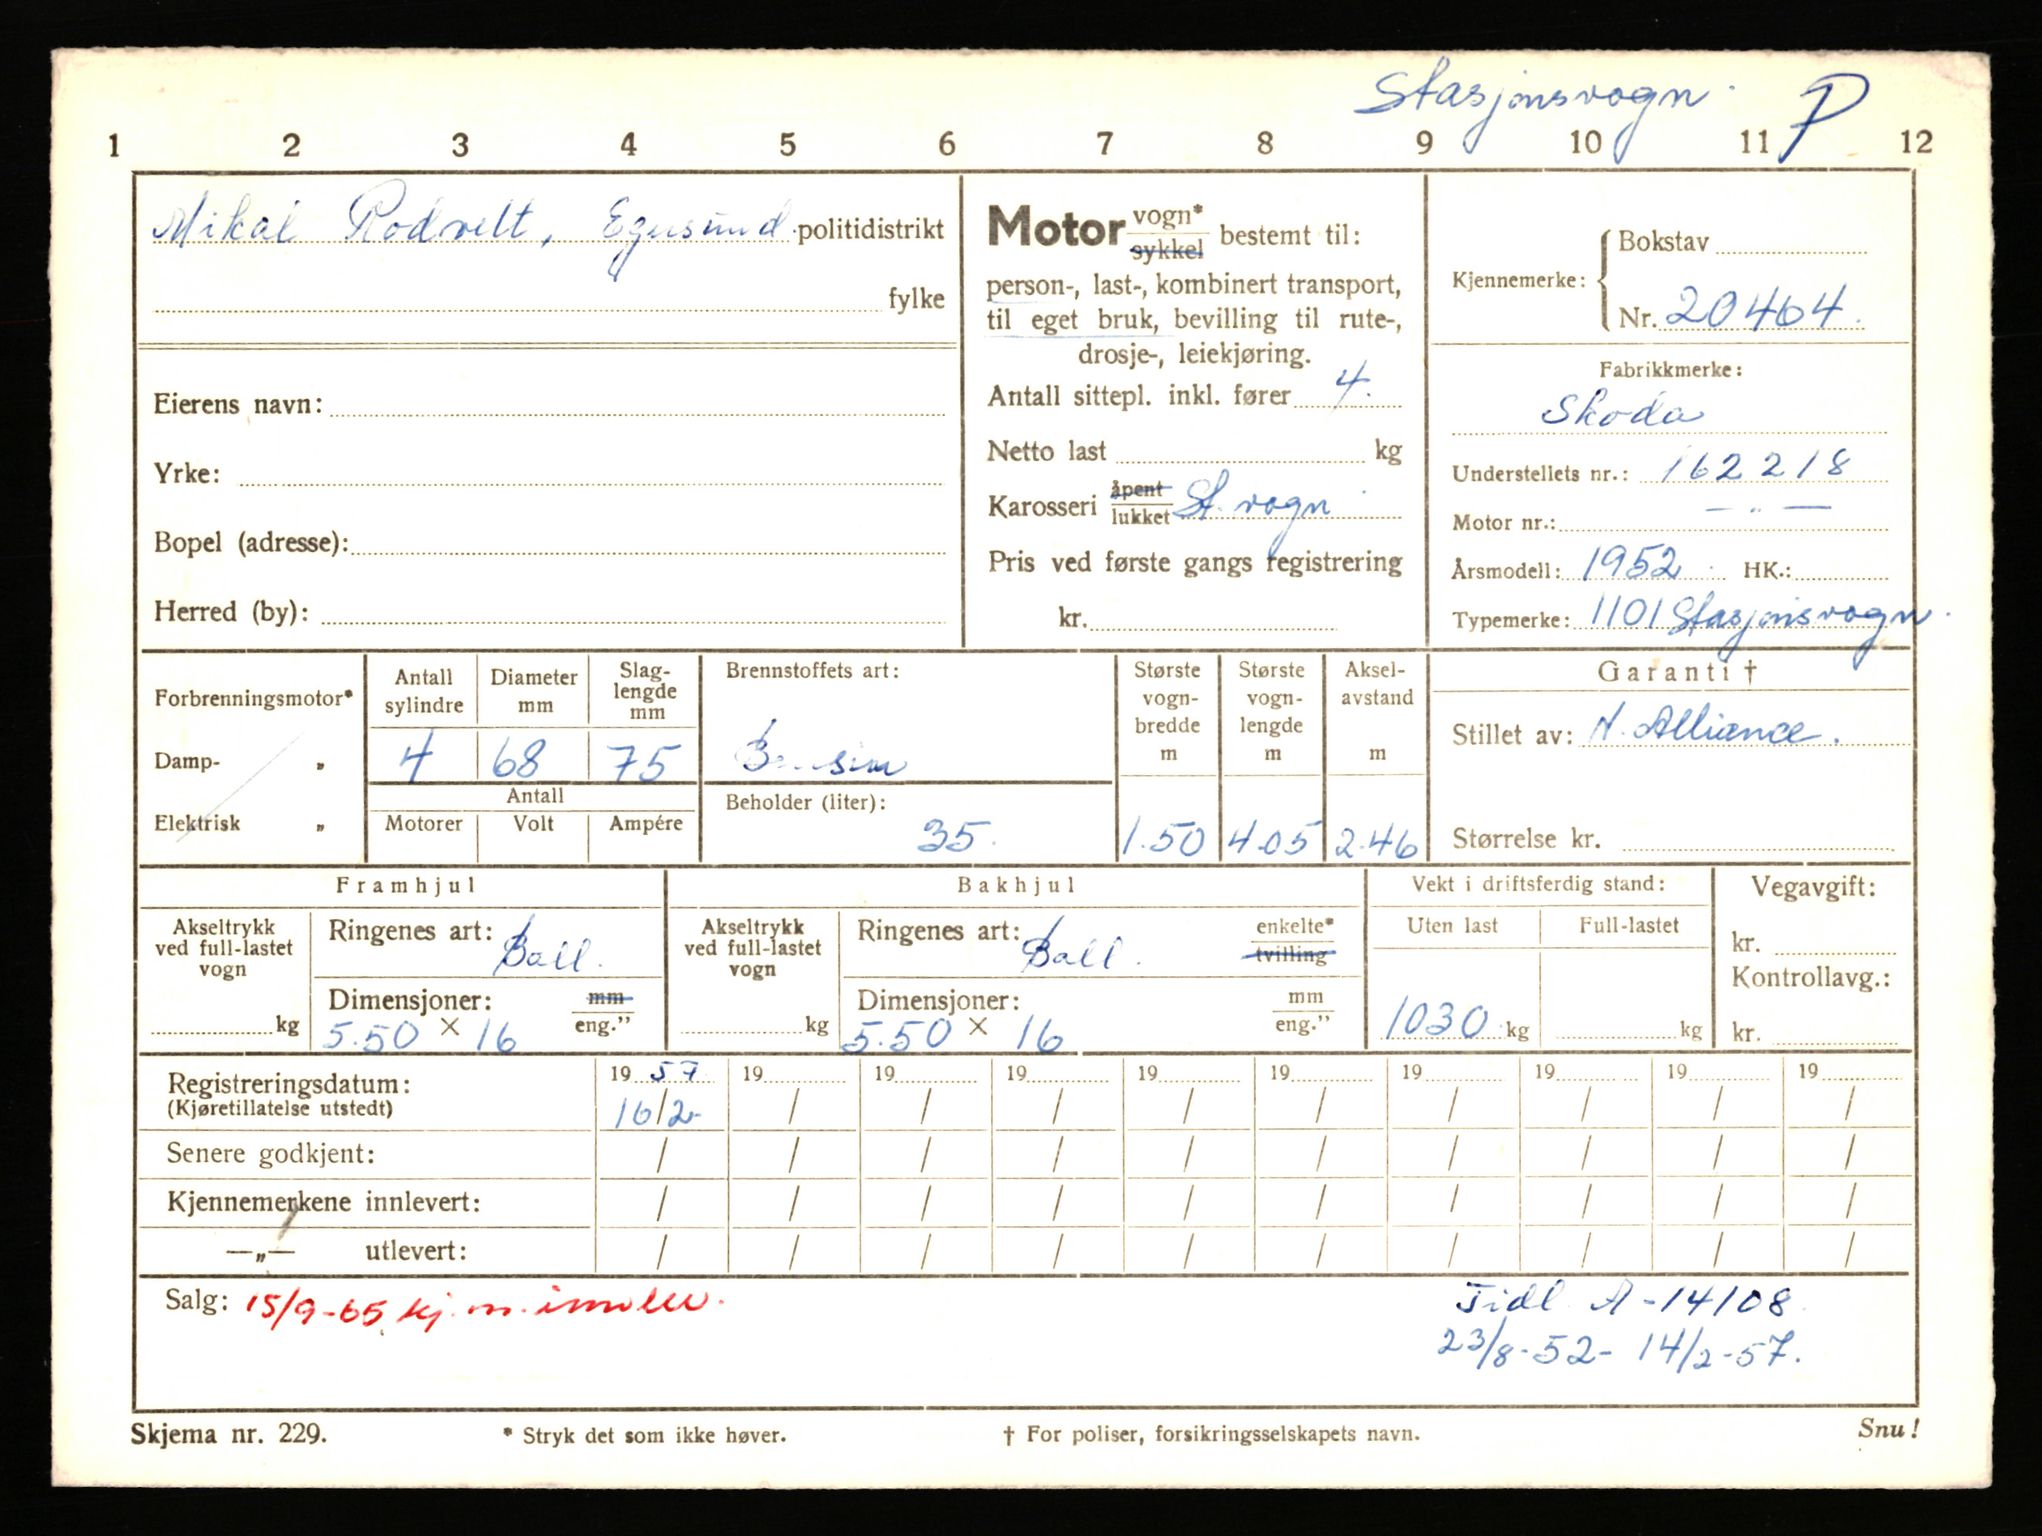 Stasjonsvogn. P
1 2 3 4 5 6 7 8 9 10 11 12
Mikal Rodvelt, Egersund politidistrikt
fylke
Eierens navn:
Yrke:
Bopel (adresse):
Herred (by):
Motor vogn* sykkel bestemt til:
person-, last-, kombinert transport,
til eget bruk, bevilling til rute-,
drosje-, leiekjøring.
Antall sittepl. inkl. fører 4.
Netto last kg
Karosseri åpent lukket St. vogn
Pris ved første gangs registrering
kr.
Kjennemerke: Bokstav
Nr. 20464.
Fabrikkmerke:
Skoda
Understellets nr.: 162218
Motor nr.: — " —
Årsmodell: 1952 HK.:
Typemerke: 1101 Stasjonsvogn.
Forbrenningsmotor*
Damp- „
Elektrisk „
Antall sylindre
4
Diameter mm
68
Slag-lengde mm
75
Antall
Motorer Volt Ampére
Brennstoffets art:
Bensin
Beholder (liter):
35.
Største vogn-bredde m
1.50
Største vogn-lengde m
4.05
Aksel-avstand m
2.46
Garanti †
Stillet av: N. Alliance.
Størrelse kr.
Framhjul
Akseltrykk ved full-lastet vogn
kg
Ringenes art: Ball.
Dimensjoner: mm eng."
5.50 × 16
Bakhjul
Akseltrykk ved full-lastet vogn
kg
Ringenes art: Ball. enkelte* tvilling
Dimensjoner: mm eng."
5.50 × 16
Vekt i driftsferdig stand:
Uten last Full-lastet
1030 kg kg
Vegavgift:
kr.
Kontrollavg.:
kr.
Registreringsdatum: 19 57 19 19 19 19 19 19 19 19 19
(Kjøretillatelse utstedt) 16/2- / / / / / / / / /
Senere godkjent: / / / / / / / / / /
Kjennemerkene innlevert: / / / / / / / / / /
—„— utlevert: / / / / / / / / / /
Salg: 15/9-65 kj. m. innlev.
Tidl. A-14108
23/8-52- 14/2-57.
Skjema nr. 229. * Stryk det som ikke høver. † For poliser, forsikringsselskapets navn. Snu!